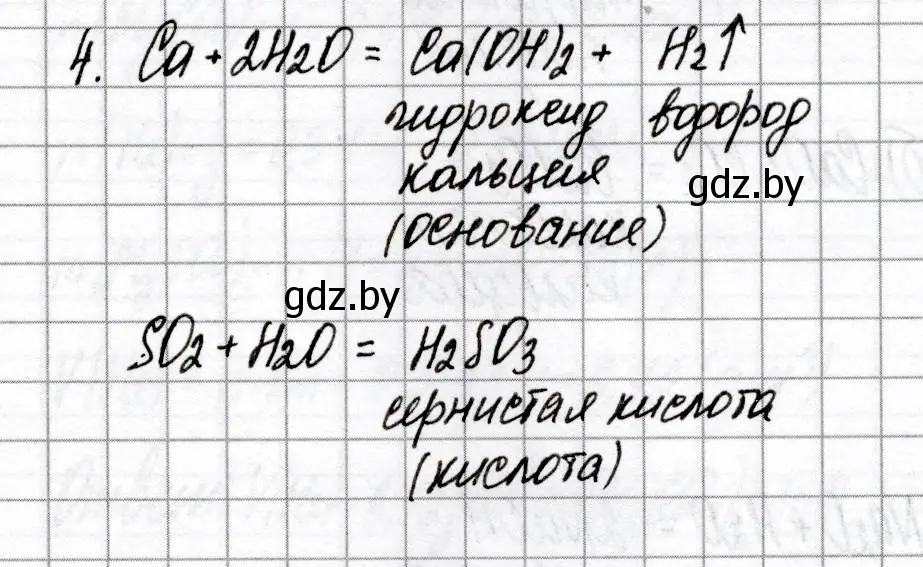 4. Ca + 2H2O = Ca(OH)2 + H2↑
гидроксид водород
кальция
gdz.by
(основание)
gdz.by
SO2 + H2O = H2SO3
сернистая кислота
(кислота)